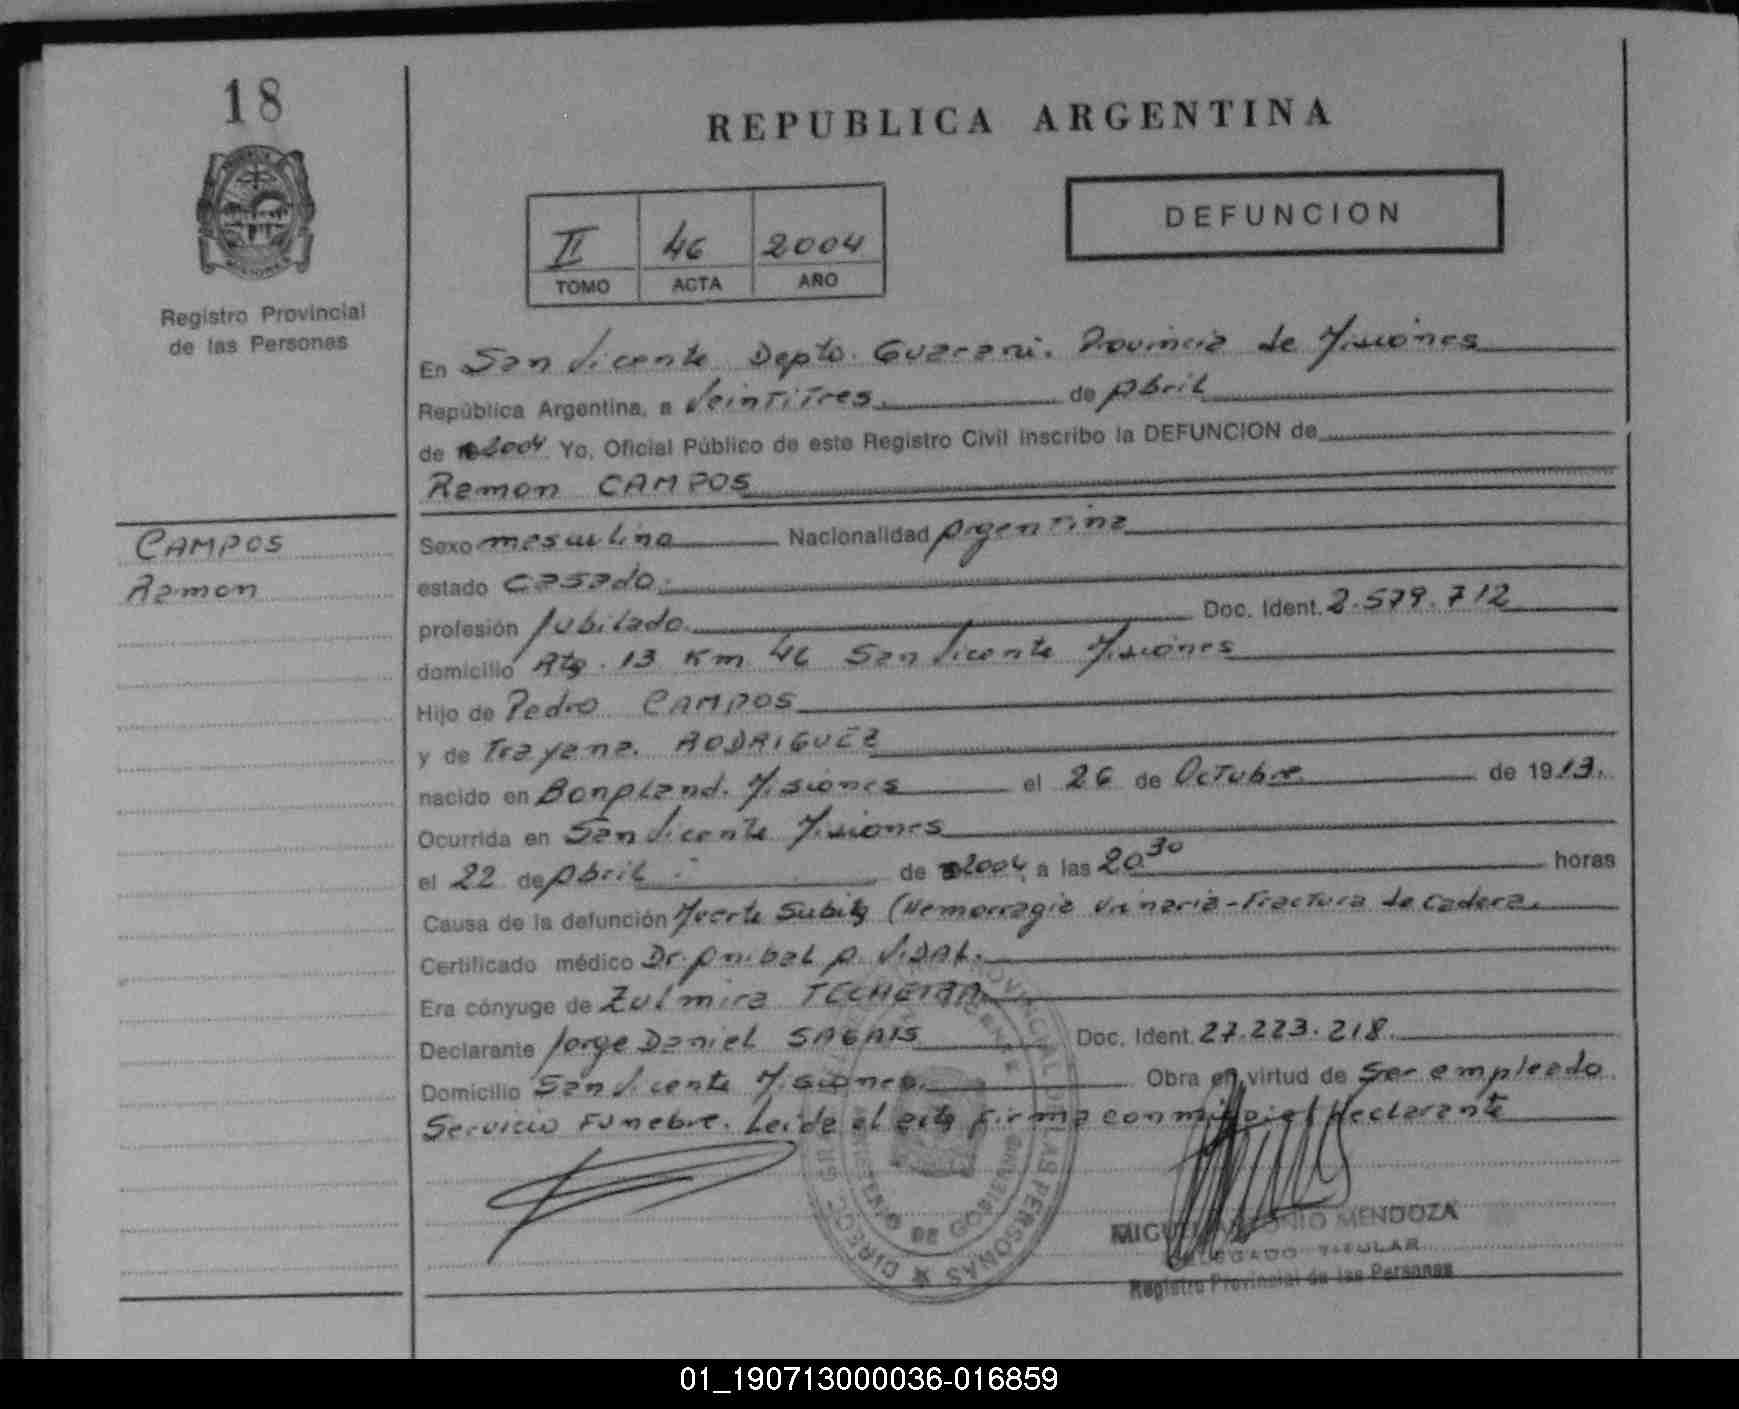 18
REPUBLICA ARGENTINA
DEFUNCION
II 46 2004
TOMO ACTA AÑO
Registro Provincial
de las Personas
En San Vicente Depto. Guarani. Provincia de Misiones
República Argentina, a Veintitres de Abril
de 2004 Yo, Oficial Público de este Registro Civil inscribo la DEFUNCION de
Ramon CAMPOS
CAMPOS
Ramon
Sexo masculino Nacionalidad Argentina
estado Casado.
profesión Jubilado. Doc. Ident. 2.579.712
domicilio Rta. 13 Km 46 San Vicente Misiones
Hijo de Pedro CAMPOS
y de Trayana. RODRIGUEZ
nacido en Bonpland. Misiones el 26 de Octubre de 1913.
Ocurrida en San Vicente Misiones
el 22 de Abril de 2004, a las 20 30 horas
Causa de la defunción Muerte Subita (Hemorragia Urinaria-Fractura de Cadera.
Certificado médico Dr. Anibal A. VIDAL.
Era cónyuge de Zulmira TECHEIRA
Declarante Jorge Daniel Doc. Ident. 27.223.218.
Domicilio San Vicente Misiones. Obra en virtud de Ser empleado
Servicio Funebre. Leida el acta firma conmigo el declarante
MINISTERIO DE GOBIERNO
PROVINCIAL DE LAS PERSONAS
MIGUEL ANTONIO MENDOZA
DELEGADO TITULAR
Registro Provincial de las Personas
01_190713000036-016859